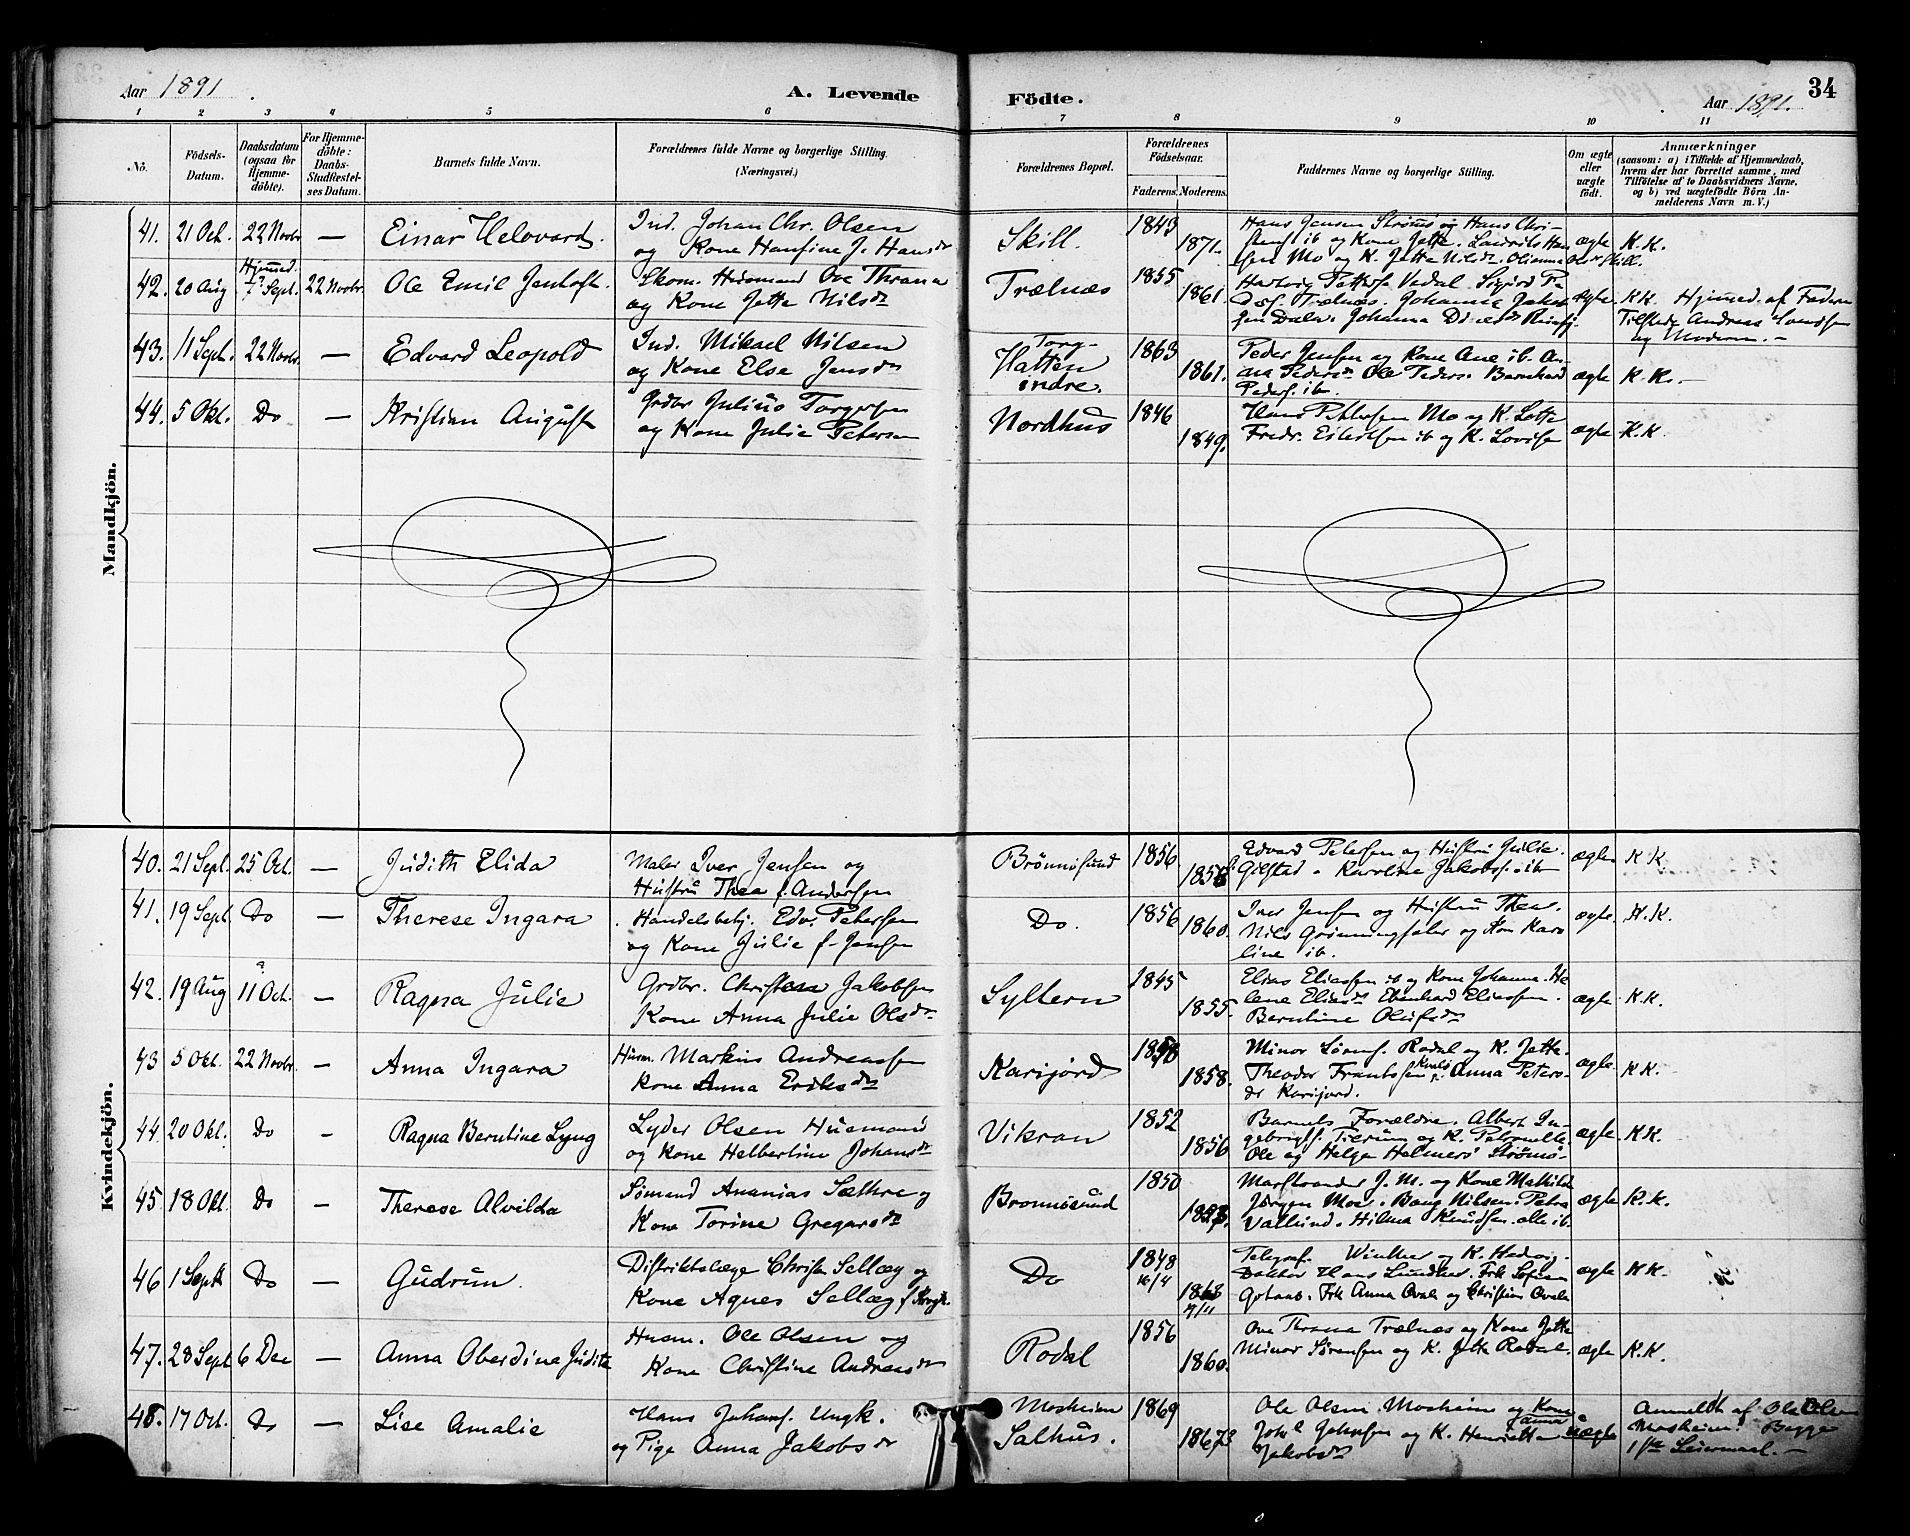 Aar 1891.
A. Levende Födte.
34
Aar 1891.
1 2 3 4 5 6 7 8 9 10 11
No.
Födsels-Datum.
Daabsdatum (ogsaa for Hjemme-döbte).
For Hjemme-döbte: Daabs-Stadfæstel-ses Datum.
Barnets fulde Navn.
Forældrenes fulde Navne og borgerlige Stilling. (Næringsvei.)
Forældrenes Bopæl.
Forældrenes Födselsaar.
Faderens. Moderens.
Faddernes Navne og borgerlige Stilling.
Om ægte eller uægte födt.
Anmærkninger
(saasom: a) i Tilfælde af Hjemmedaab, hvem der har forrettet samme, med Tilföielse af to Daabsvidners Navne, og b) ved uægtefödte Börn An-melderens Navn m. V.)
Mandkjön.
41. 21 Oct. 22 Novbr — Einar Helovard. Ind. Johan Chr. Olsen
og Kone Hansine J. Hansdr Skill. 1843 1871. Hans Jensen Strömö og Hans Chri-
stens. ib og Kone Jette. Laurits Han
sen Mo og K. Jette Nilsdr. ægte K. K.
42. 20 Aug Hjemmed. 7 Sept. 22 Novbr. Ole Emil Jentoft Skom. Husmand Ove Thrana
og Kone Jette Nilsdr Trælnæs 1855 1861. Hartvig Petters. Vedal. Sigurd Pe
Trælnæs. Johanna Jakob
sen Dale. Johanna ægte KK. Hjemmed. af Faderen
Tilstede Andreas
og Moderen. —
43. 11 Sept. 22 Novbr. — Edvard Leopold Ind. Mikael Nilsen
og Kone Else Jensdr Torg-
Hatten
indre. 1863 1861. Peder Jensen og Kone Ane ib. An-
na Pedersdr Ole Peders. Bernhard
Peders. ib. ægte K. K. —
44. 5 Okt. Do — Kristian August Grdbr Julius Torgersen
og Kone Julie Petersen Nordhus 1846 1849. Hans Pettersen Mo og K. Lotte
Fredr. Eilertsen ib og K. Lovise ægte K. K.
Kvindekjön.
40. 21 Sept. 25 Oct. — Judith Elida Maler Iver Jensen og
Hustru Thea f. Andersen Brönnösund 1856 Edvard Petersen og Hustru Julie.
Gilstad. Karoline Jakobs. ib ægte K K
41. 19 Sept. Do — Therese Ingara Handelsbetj. Edv. Petersen
og Kone Julie f. Jensen Do. 1856 1860. Iver Jensen og Hustru Thea.
Nils Grönningsæter og Kon Karo
line ib. ægte. K. K.
42. 19 Aug 11 Oct. — Ragna Julie Grdbr. Christen Jakobsen
Kone Anna Julie Olsdr Syltern 1845 1855. Elias Eliassen ib og Kone Johanna. He
lene Eliasdr Ebenhard Eliassen.
Berntine Olufsdr ægte K. K.
43 5 Okt. 22 Novbr. — Anna Ingara Husm. Markus Andreassen
Kone Anna Eriksdr Karijord 1858. Minor Sörens. Rodal og K. Jette.
Theodor Frantssen Anna Peters-
dr Karijord. ægte K K.
44 20 Okt. Do — Ragna Berntine Lyng Lyder Olsen Husmand
og Kone Helbertine Johansdr Vikran 1852 1856 Barnets Forældre. Albert In-
gebrigts. Tilrum og K. Petronelle
Ole og Helga Helmers Strömö. ægte K K.
45 18 Okt. Do — Therese Alvilda Sömand Ananias Sæthre og
Kone Torine Gregarsdr Bronnösund 1850 J. M. og Kone Mathilde
Jörgen Moe. Bang Nilsen. Petra
Vallund. Hilma Knudsen. alle ib. ægte K. K.
46 1 Sept Do — Gudrun. Distriktslæge Christn Selleg og
Kone Agnes Selleg Do 1848 16/4 1863 9/11 Telegraf. Winther og K. Hedvig.
Doktor Hans Lundker. Frk Sofie
Frk Anna Qvale og Christian Qvale ægte K K.
47. 28 Sept 6 Dec — Anna Oberdine Judith Husm. Ole Olsen og
Kone Christine Andreasdr Rodal 1856 1860. Ove Thrana Trælnæs og Kone Jette
Minor Sörensen og K. Jette Rodal. ægte K. K.
48. 17 Oct. Do — Lise Amalie Hans Johans. Ungk.
og Pige Anna Jakobsdr Mosheim
Salhus. 1869 1867 Ole Olsen Mosheim og Kone Anna
og K. Henriette
Jakobsdr uægte Anmeldt af Ole Olsen
Mosheim. Begge
1ste Leiermaal. —